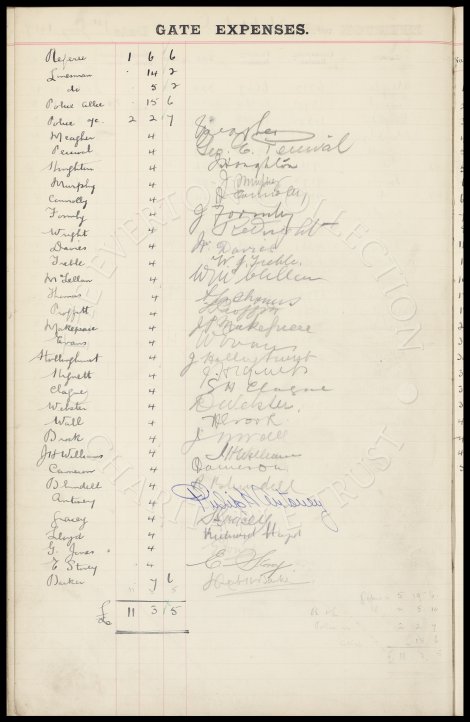 GATE EXPENSES.
Referee 1 6 6
Linesman . 14 2
do . 5 2
Police allce . 15 6
Police &c. 2 2 7
Meagher 4 J Meagher
Percival 4 Geo. C. Percival
Houghton 4 J Houghton
Murphy 4 J Murphy
Connolly 4 Connolly
Formby 4 J Formby
Wright 4 R Wright
Davies 4 W Davies
Treble 4 W. J. Treble.
McLellan 4 Wm McLellan
Thomas 4 Thomas
Proffitt 4 Proffitt
Makepeace 4 J H Makepeace
Evans 4 W Evans
Hollinghurst 4 J Hollinghurst
Hignett 4 J. Hignett
Clague 4 S H Clague
Webster 4 D Webster.
Wall 4
Brook 4 H Brook.
J H Williams 4 J H Williams
Cameron 4 Cameron
Blundell 4 Blundell
Antwey 4
Gracey 4 S Gracey
Lloyd 4 Richard Lloyd
G. Jones 4
E Storey 4 E Storey
Barker 7 6
£ 11 3 5
THE EVERTON COLLECTION
CHARITABLE TRUST